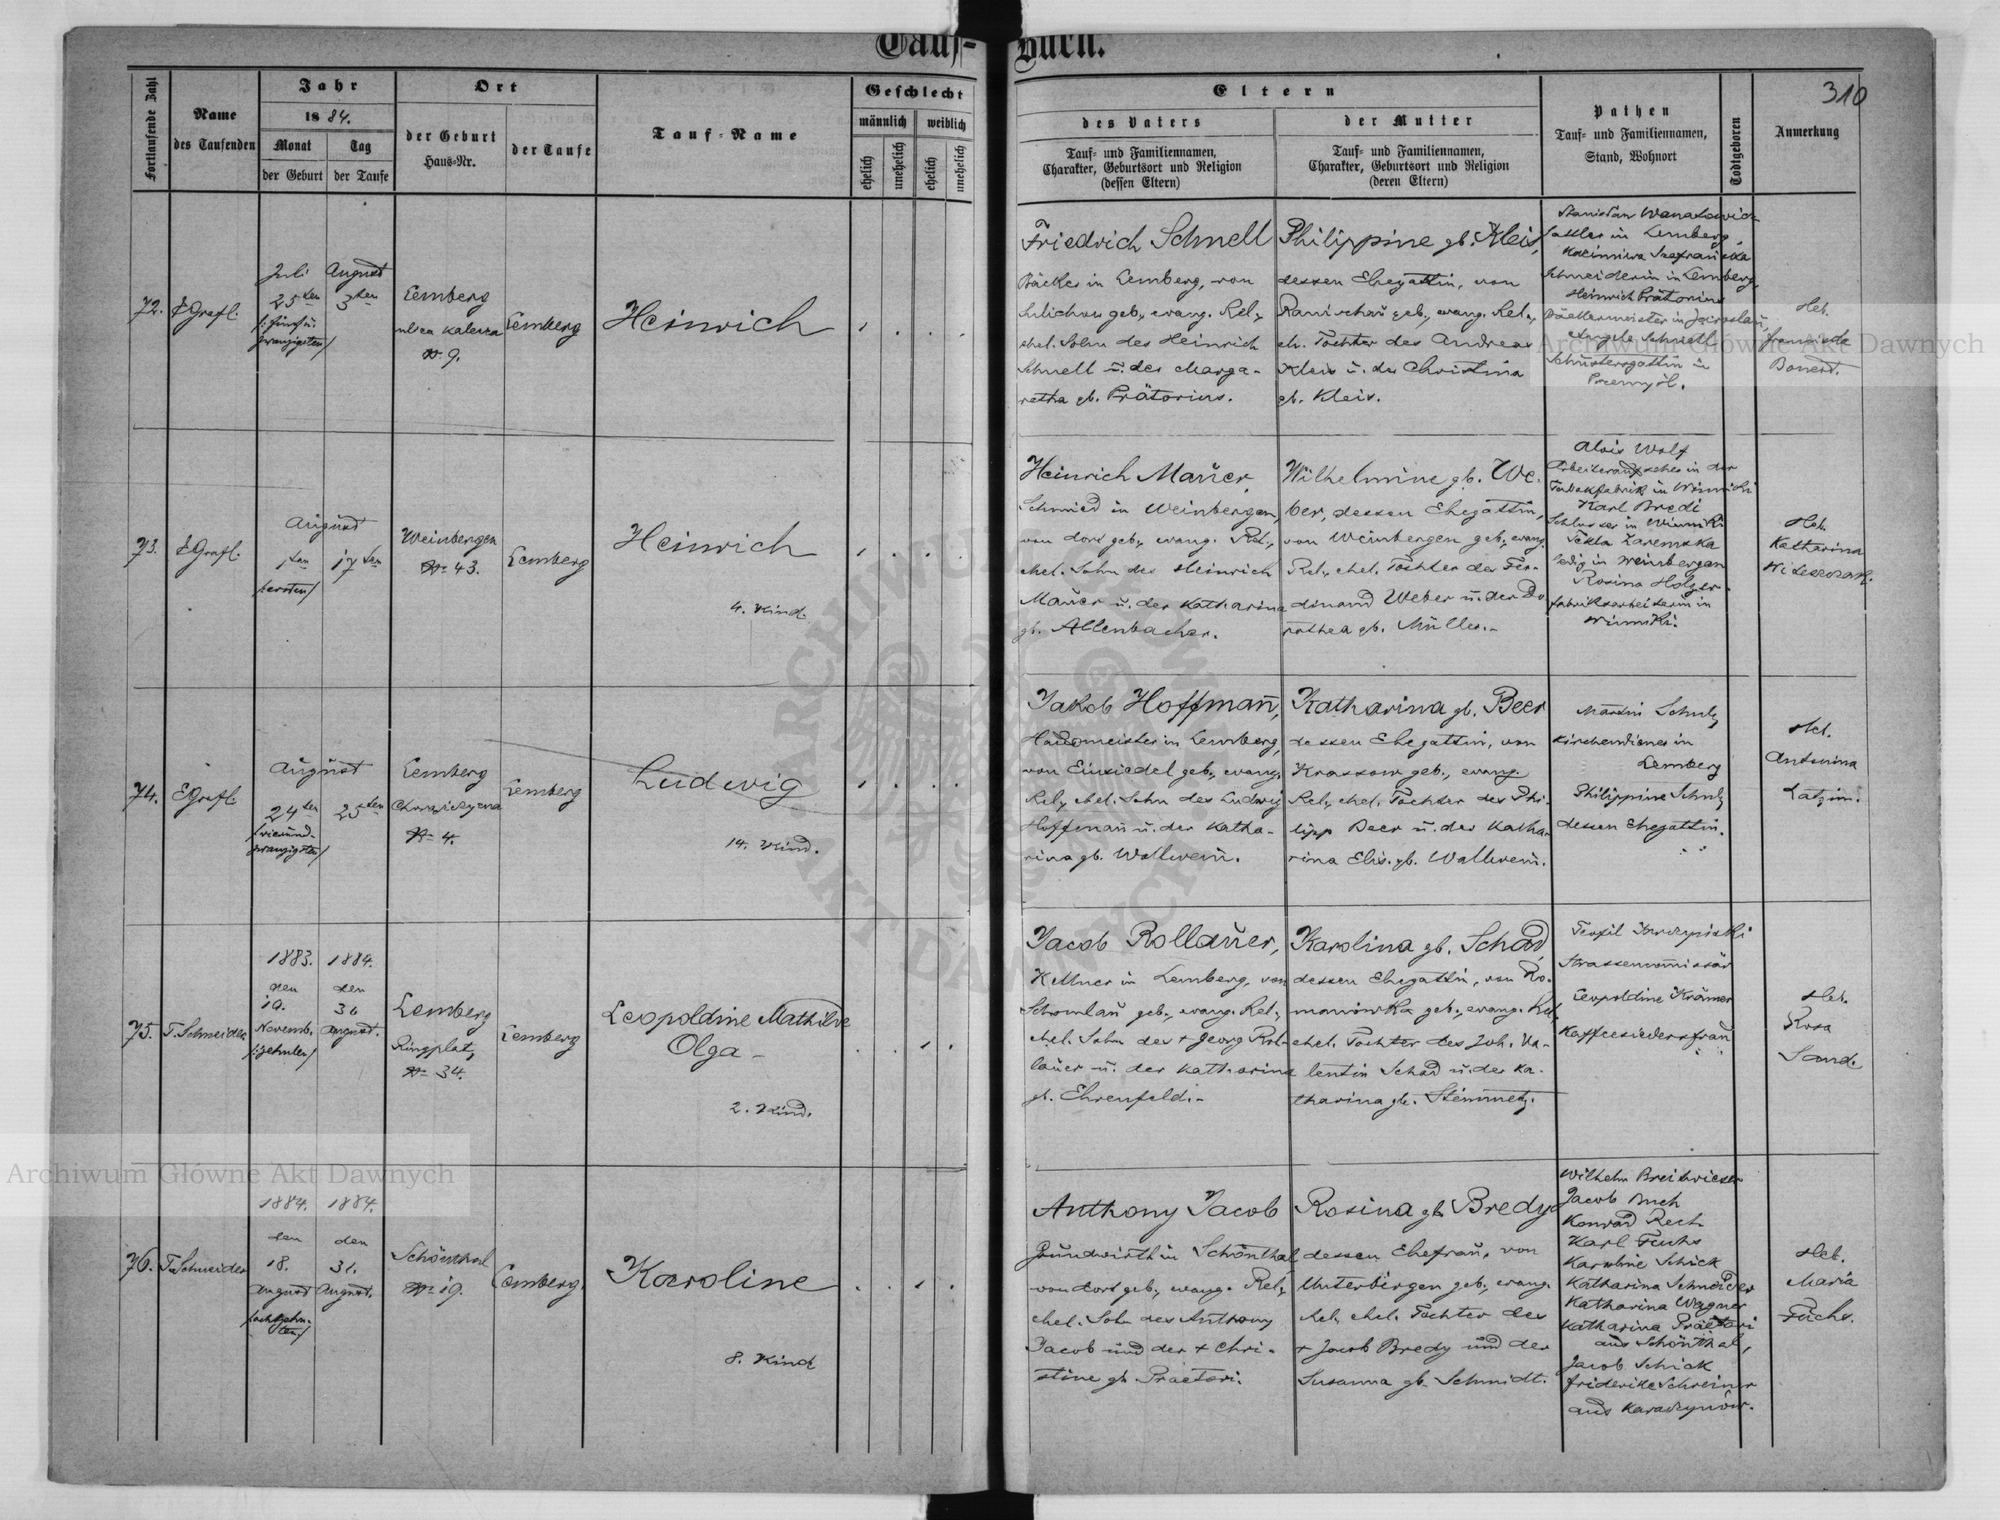 Tauf-Buch.
310
Fortlaufende Zahl
Name
des Taufenden
Jahr
1884.
Monat
Tag
der Geburt
der Taufe
Ort
der Geburt
Haus-Nr.
der Taufe
Tauf-Name
Geschlecht
männlich
weiblich
ehelich
unehelich
ehelich
unehelich
Eltern
des Vaters
Tauf- und Familiennamen,
Charakter, Geburtsort und Religion
(dessen Eltern)
der Mutter
Tauf- und Familiennamen,
Charakter, Geburtsort und Religion
(deren Eltern)
Pathen
Tauf- und Familiennamen,
Stand, Wohnort
Todtgeboren
Anmerkung
72.
Juli
25ten
/: fünf u.
zwanzigsten /
August
3ten
Lemberg
ulica
№ 9.
Lemberg
Heinrich
Friedrich Schnell
Bäcker in Lemberg, von
geb., evang. Rel.,
ehel. Sohn des Heinrich
Schnell u. der Marga-
retha gb. Prätorius.
Philippine gb. Kleis,
dessen Ehegattin, von
Ranischau geb., evang. Rel.,
eh. Tochter des Andreas
Kleis u. der Christina
gb. Kleis.
Stanislau
Sattler in Lemberg,
Schneiderin in Lemberg,
Heinrich Prätorius
Bäckermeister in Jaroslau,
Angela Schnell
Schustersgattin in
Przemyśl.
Heb.
Franciska
73.
August
1ten
/ersten/
17ten
Weinbergen
№ 43.
Lemberg
Heinrich
4. Kind.
Heinrich Mauer
Schmied in Weinbergen,
von dort geb., evang. Rel.,
ehel. Sohn des Heinrich
Mauer u. der Katharina
gb. Allenbacher.
Wilhelmine gb. We-
ber, dessen Ehegattin,
von Weinbergen geb., evang.
Rel., ehel. Tochter des Fer-
dinand Weber u. der Do-
rothea gb. Müller.-
Alois Wolf
Arbeiteraufseher in der
Tabakfabrik in Winniki
Karl Bredi
Schlosser in Winniki
Tekla Zaremska
ledig in Weinbergen
Rosina Holzer
Fabriksarbeiterin in
Winniki.
Heb.
Katharina
74.
August
24ten
/vierund-
zwanzigsten/
25ten
Lemberg
№ 4.
Lemberg
Ludwig
14. Kind.
Jakob Hoffmann,
Hausmeister in Lemberg,
von Einsiedel geb., evang.
Rel., ehel. Sohn des Ludwig
Hoffmann u. der Katha-
rina gb. Wollwein.
Katharina gb. Beer
dessen Ehegattin, von
Krassow geb., evang.
Rel., ehel. Tochter des Phi-
lipp Beer u. der Katha-
rina Elis. gb. Wallwein.
Martin Schulz
Kirchendiener in
Lemberg
Philippine Schulz
dessen Ehegattin.
Heb.
Antonina
75.
T. Schneider
1883.
den
10.
Novemb.
/:zehnten/
1884.
den
30
August.
Lemberg
Ringplatz
№ 34.
Lemberg
Leopoldine Mathilde
Olga -
2. Kind.
Jacob Rollauer,
Kellner in Lemberg, von
Schomlau geb., evang. Rel.,
ehel. Sohn des + Georg Rol-
lauer u. der Katharina
gb. Ehrenfeld.-
Karolina gb. Schad,
dessen Ehegattin, von Ro-
manówka geb., evang. Rel.,
ehel. Tochter des Joh. Va-
lentin Schad u. der Ka-
tharina gb. Steinmetz.
Teofil Karczyński
Strassencommissär
Leopoldine Krämer
Kaffeesiedersfrau
Heb.
Rosa
Sand.
76.
T. Schneider
1884.
den
18.
August
/achtzehn-
ten/
1884.
den
31.
August.
Schönthal
№ 19.
Lemberg.
Karoline
8. Kind
Anthony Jacob
Grundwirth in Schönthal
von dort geb., evang. Rel.,
ehel. Sohn des Anthony
Jacob und der + Chri-
stine gb. Praetori.
Rosina gb. Bredy
dessen Ehefrau, von
Unterbergen geb., evang.
Rel., ehel. Tochter des
+ Jacob Bredy und der
Susanna gb. Schmidt.
Wilhelm Breitwieser
Jacob Buch
Konrad Rech
Karl Fuchs
Karoline Schick
Katharina Schneider
Katharina Wagner
Katharina Praetori
aus Schönthal,
Jacob Schick
Friderike Schreiner
aus Karaczynów.
Heb.
Maria
Fuchs.
Archiwum Główne Akt Dawnych
Archiwum Główne Akt Dawnych
ARCHIWUM GŁÓWNE AKT DAWNYCH